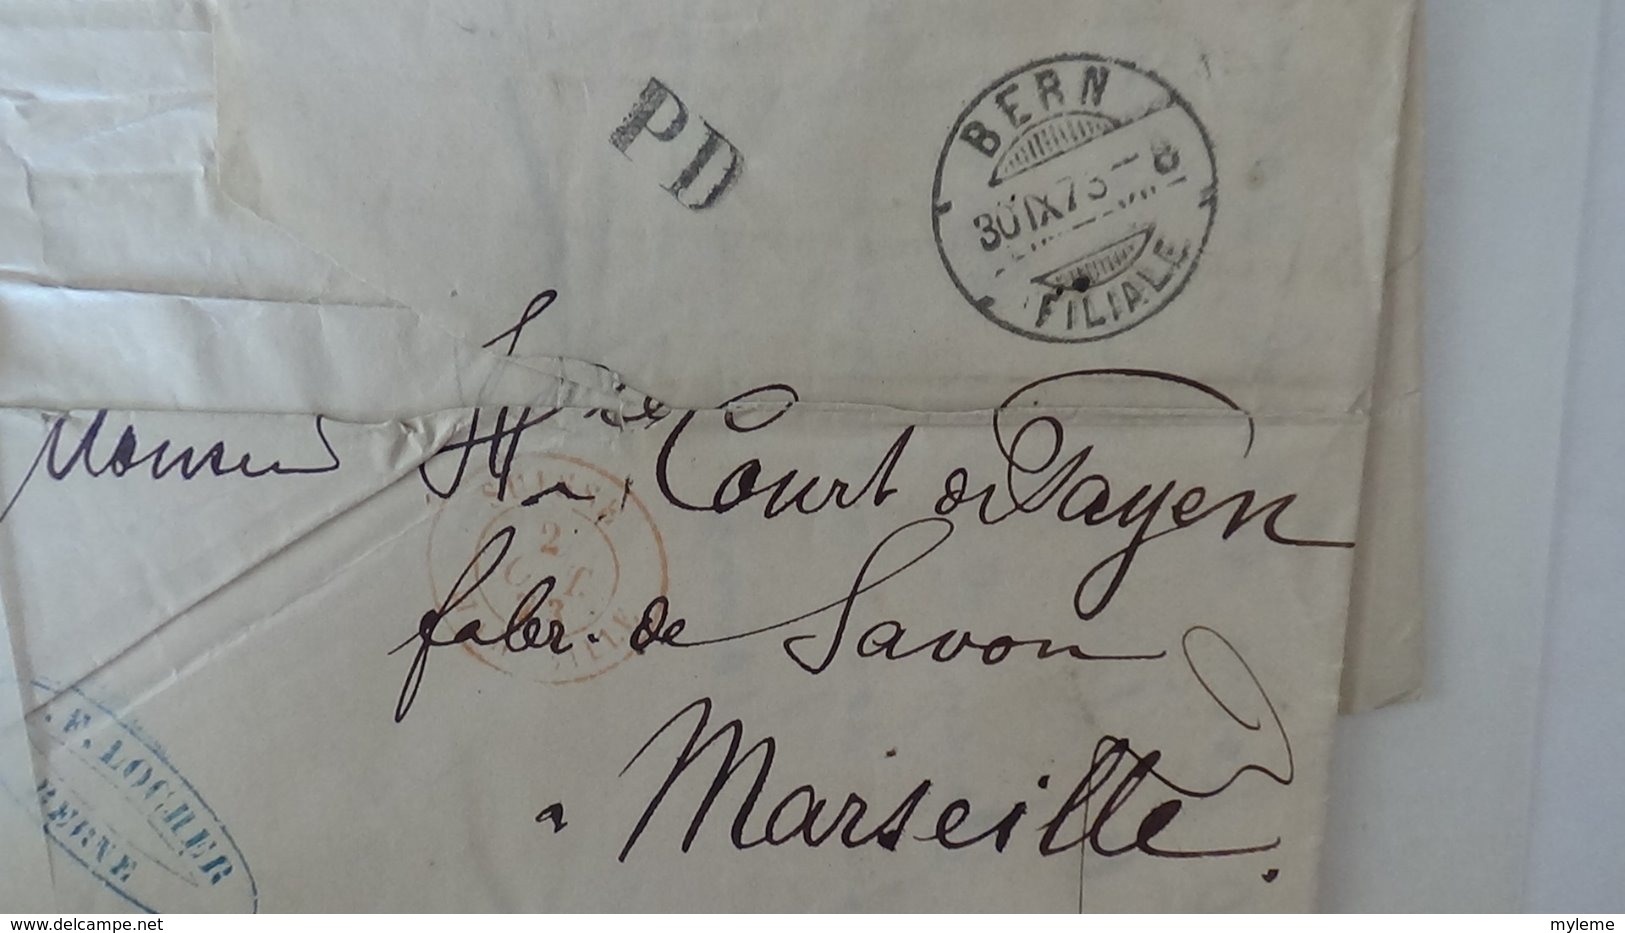 PD
BERN
30 IX 73 - 8
FILIALE
Monsieur Hri Court de Payen
SUISSE
2
OCT.
73
fabr. de Savon
MARSEILLE
a Marseille.
F. LOCHER
BERNE
www.delcampe.net
myleme